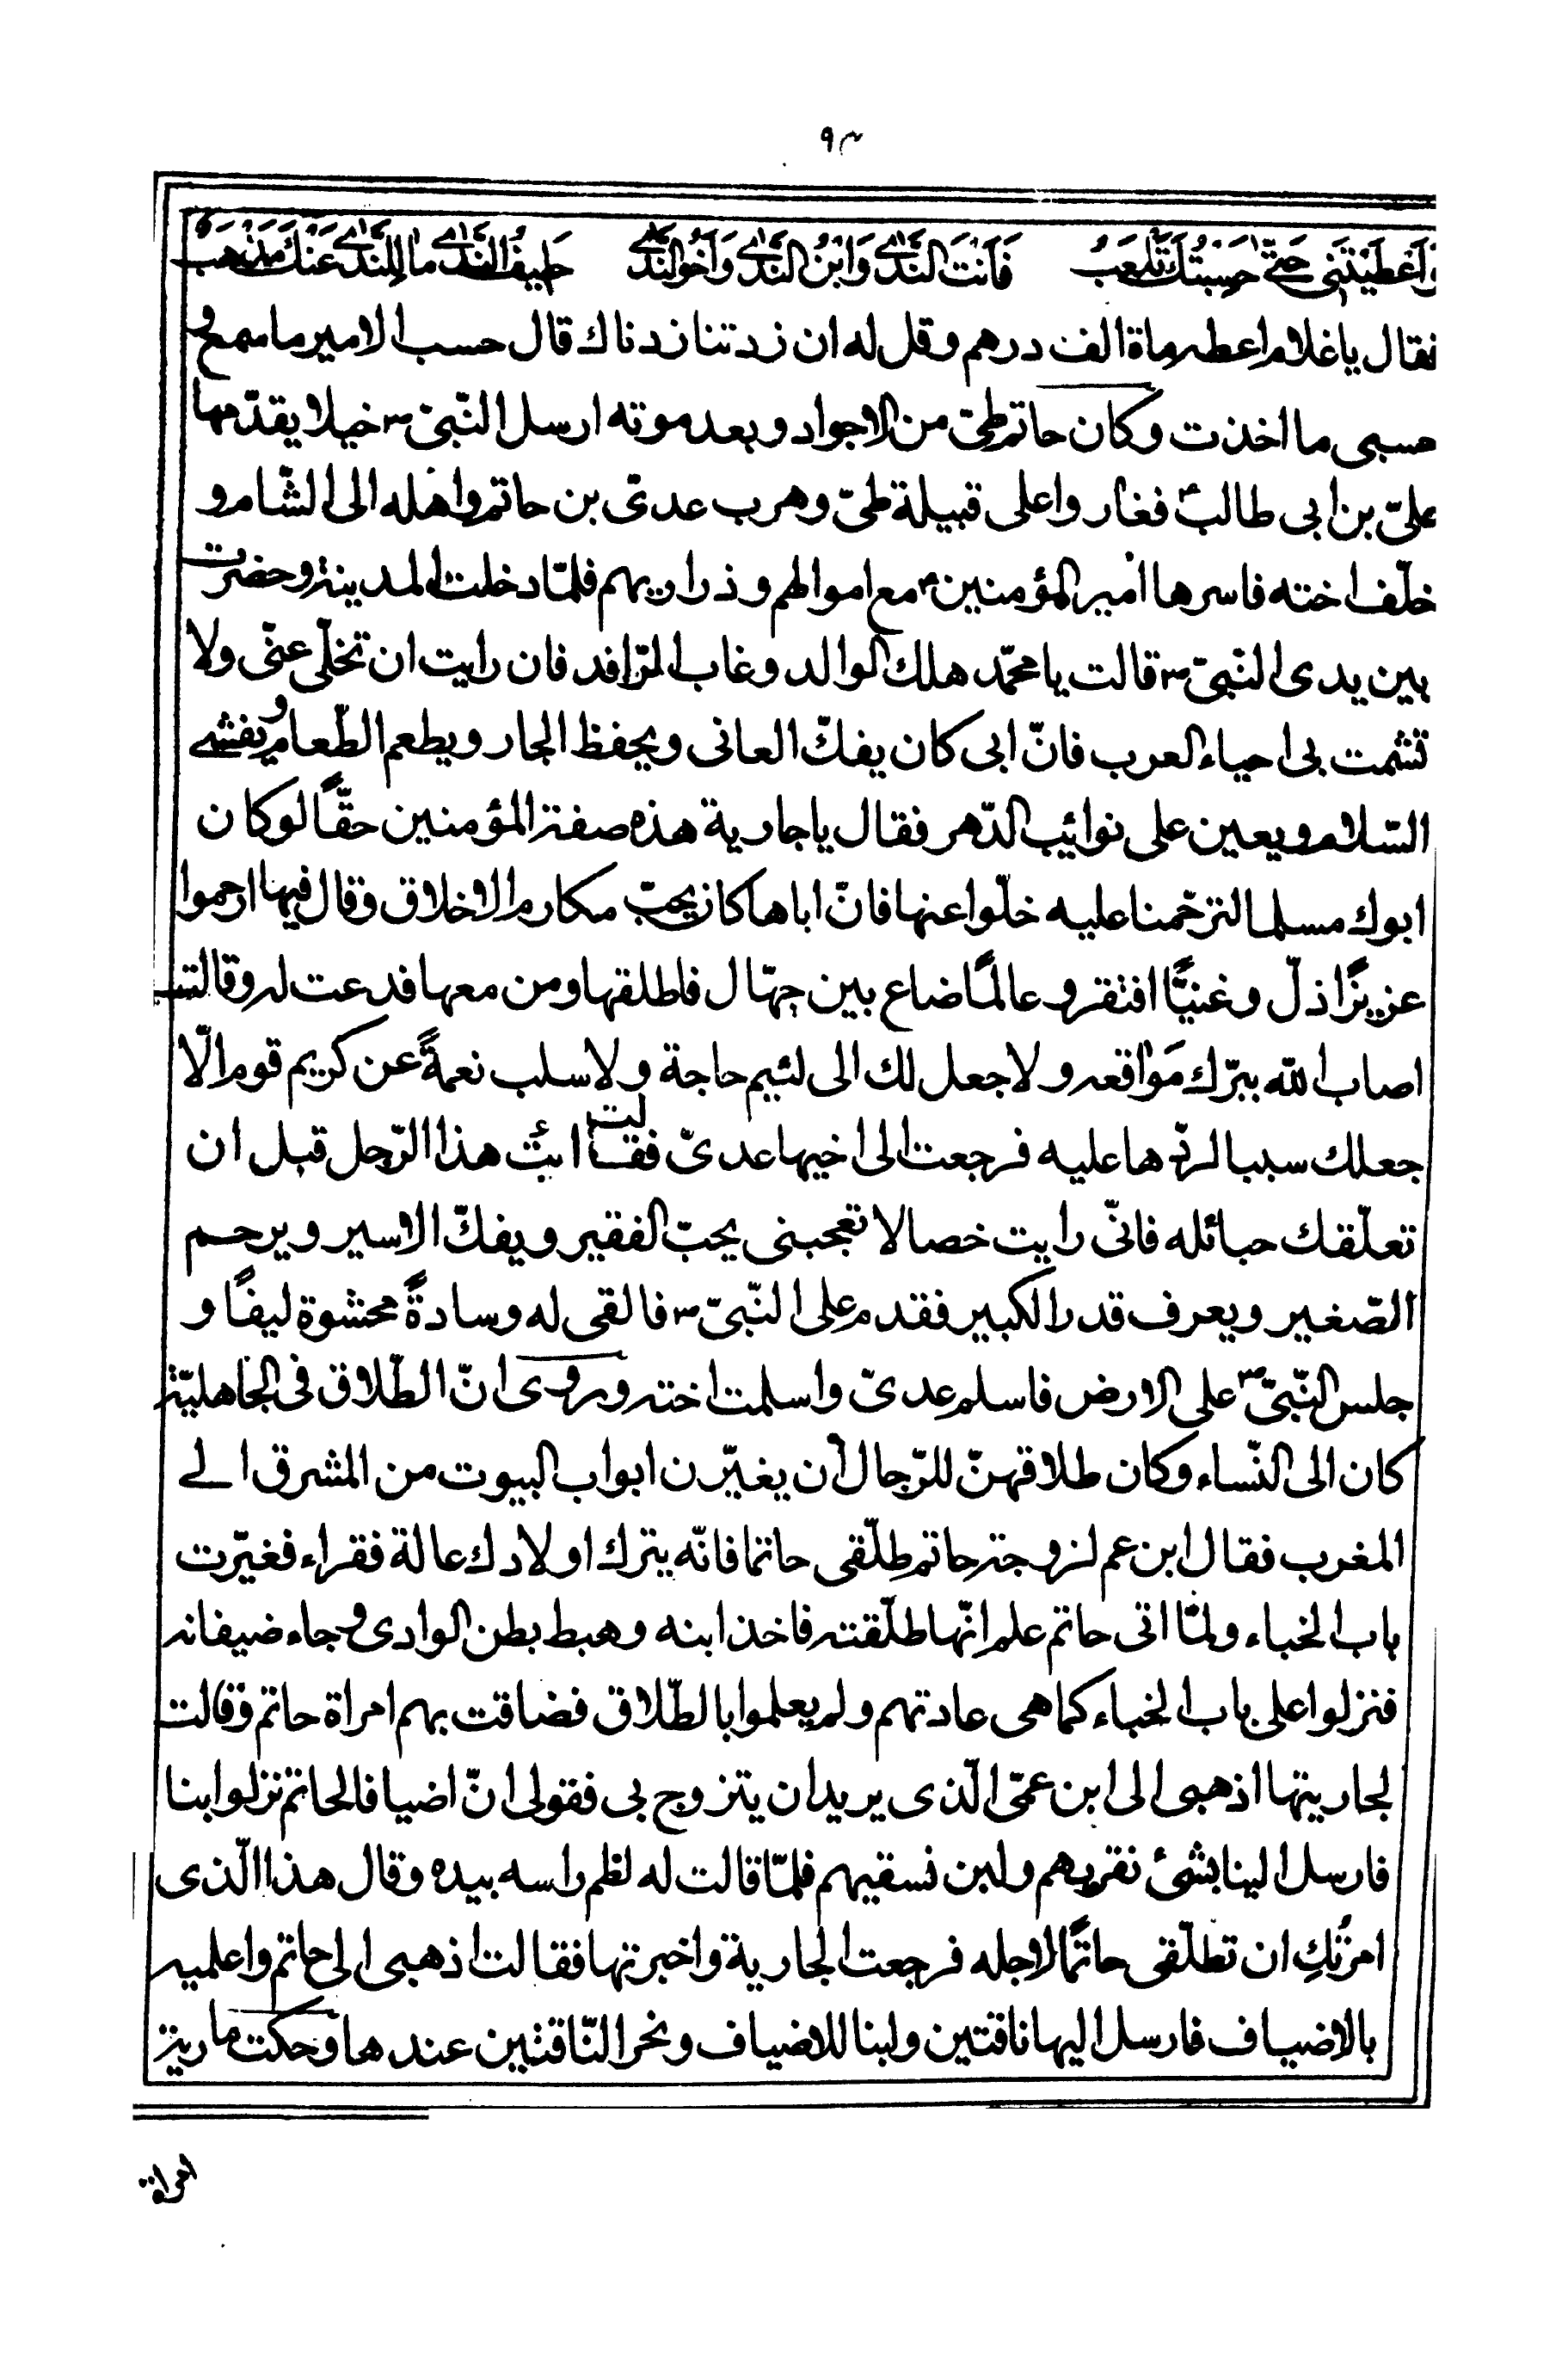 ٩٣
وَاَعْطَيْتَنى حَتّى حَسِبْتُكَ تَلْعَبُ فَاَنْتَ النَّدى وَابْنُ النَّدى وَاَخُو النَّدى حَليفُ النَّدى ما لِلنَّدى عَنْكَ مَذْهَبُ
فقال يا غلام اعطه ماة الف درهم وقل له ان زدتنا زدناك قال حسب الامير ما سمع و
حسبى ما اخذت وكان حاتم طىّ من الاجواد وبعد موته ارسل النّبىّ ص خيلا يقدّمها
علىّ بن ابى طالب ع فغاروا على قبيلة طىّ وهرب عدىّ بن حاتم واهله الى الشّام و
خلّف اخته فاسرها امير المؤمنين ع مع اموالهم وذراريهم فلمّا دخلت المدينة وحضرت
بين يدى النّبىّ ص قالت يا محمّد هلك الوالد وغاب الرّافد فان رايت ان تخلّى عنّى ولا
تشمت بى احياء العرب فانّ ابى كان يفكّ العانى ويحفظ الجار ويطعم الطّعام ويفشى
السّلام ويعين على نوائب الدّهر فقال يا جارية هذه صفة المؤمنين حقّاً لو كان
ابوك مسلما لترحّمنا عليه خلّوا عنها فانّ اباها كان يحبّ مكارم الاخلاق وقال فيها ارحموا
عزيزًا ذلّ وغنيًّا افتقر وعالمًا ضاع بين جهّال فاطلقها ومن معها فدعت له وقالت
اصاب الله ببرّك مَواقعه ولا جعل لك الى لئيم حاجة ولا سلب نعمةً عن كريم قوم الّا
جعلك سببا لردّها عليه فرجعت الى اخيها عدىّ فقالت ائت هذا الرّجل قبل ان
تعلّقك حبائله فانّى رايت خصالا تعجبنى يحبّ الفقير ويفكّ الاسير ويرحم
الصّغير ويعرف قدر الكبير فقدم على النّبىّ ص فالقى له وسادةً محشوة ليفًا و
جلس النّبىّ ص على الارض فاسلم عدىّ واسلمت اخته وروى انّ الطّلاق فى الجاهليّة
كان الى النّساء وكان طلاقهنّ للرّجال أن يغيّرن ابواب البيوت من المشرق الى
المغرب فقال ابن عم لزوجة حاتم طلّقى حاتما فانّه يترك اولادك عالة فقراء فغيّرت
باب الخباء ولمّا اتى حاتم علم انّها طلّقته فاخذ ابنه وهبط بطن الوادى وجاء ضيفانه
فنزلوا على باب الخباء كما هى عادتهم ولم يعلموا بالطّلاق فضاقت بهم امراة حاتم وقالت
لجاريتها اذهبى الى ابن عمّى الّذى يريد ان يتزوج بى فقولى انّ اضيافا لحاتم نزلوا بنا
فارسل الينا بشئ نقريهم ولبن نسقيهم فلمّا قالت له لظم راسه بيده وقال هذا الّذى
امرتُكِ ان تطلّقى حاتمًا لاجله فرجعت الجارية واخبرتها فقالت اذهبى الى حاتم واعلميه
بالاضياف فارسل اليها ناقتين ولبنا للاضياف ونحر النّاقتين عندها وحكت مارية
امراة